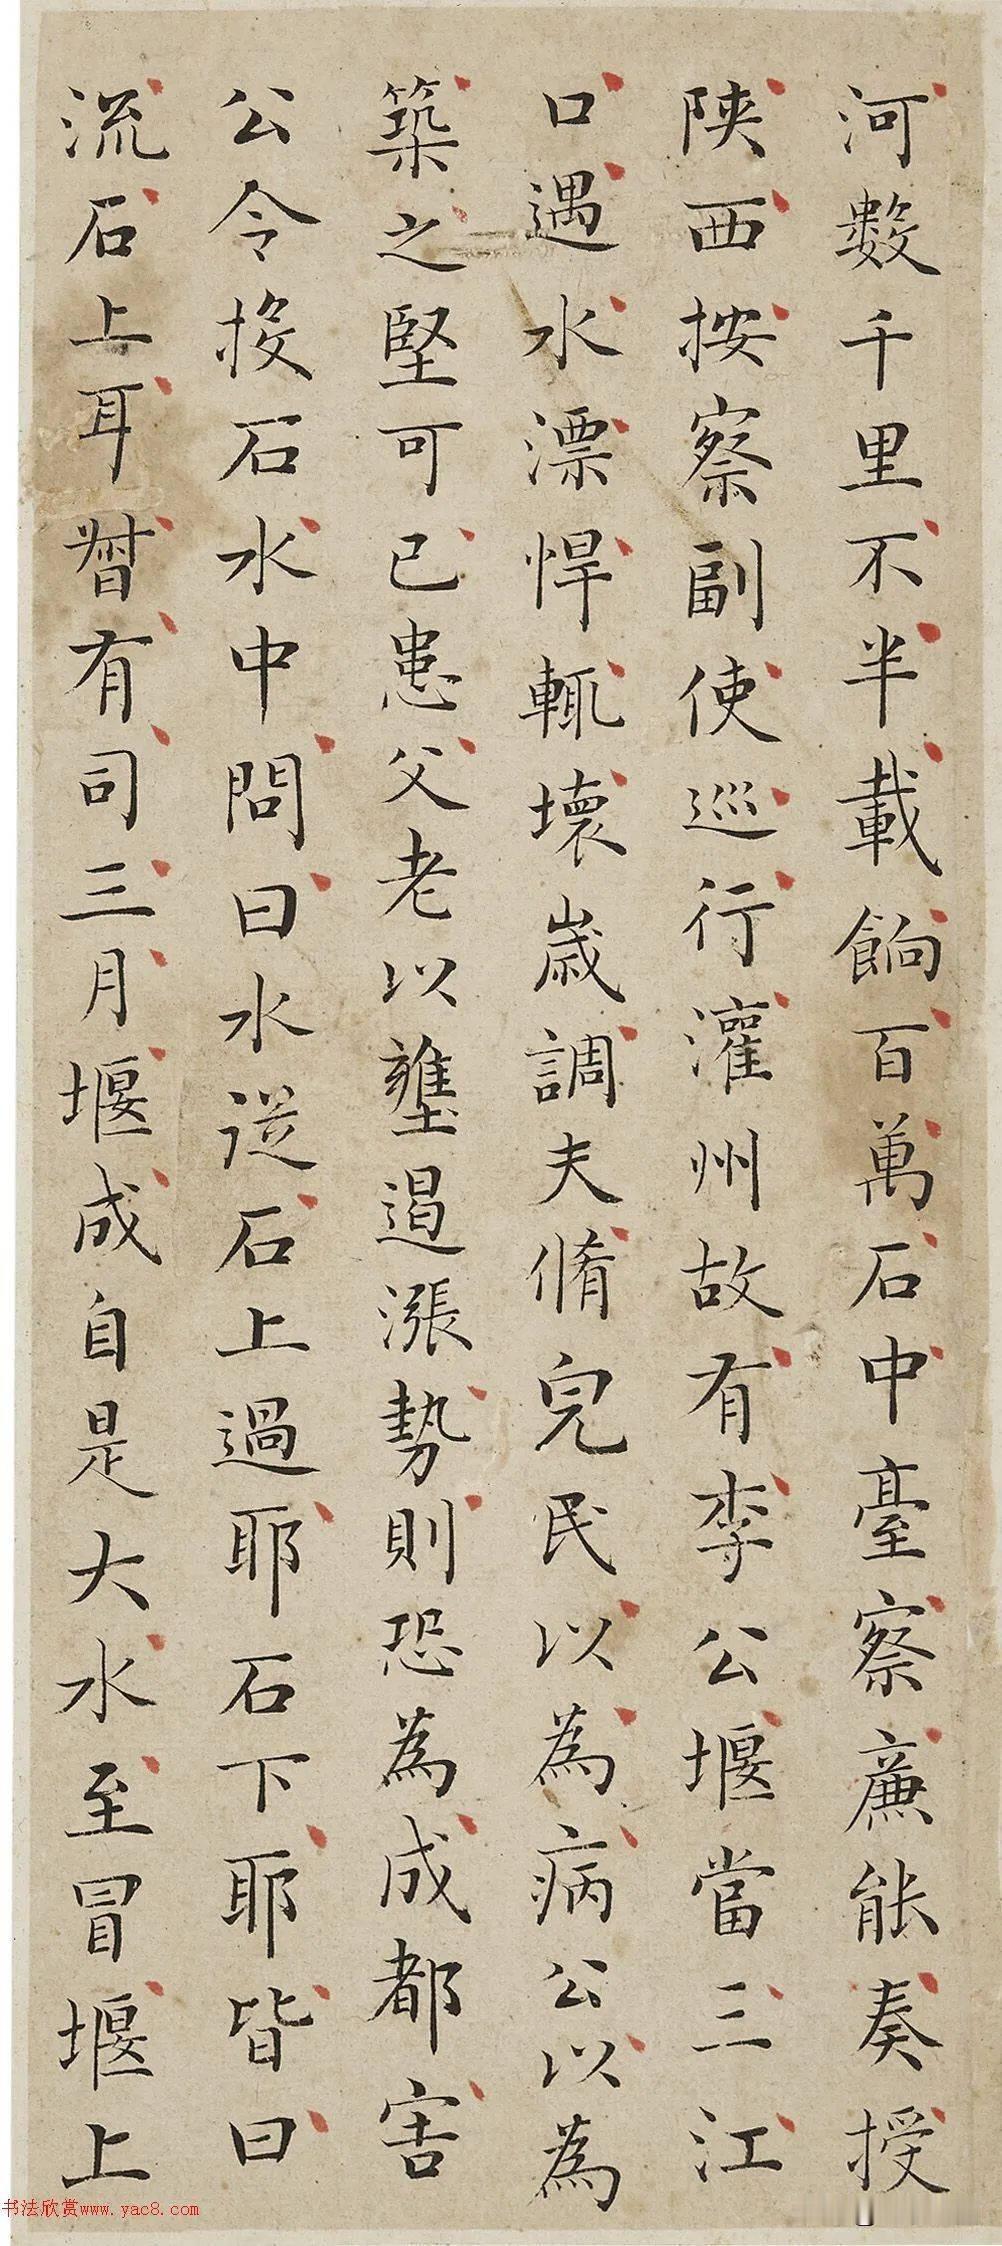 河數千里不半載餉百萬石中臺察廉能奏授
陝西按察副使巡行灌州故有李公堰當三江
口遇水漂悍輒壞歲調夫脩完民以為病公以為
築之堅可已患父老以壅遏漲勢則恐為成都害
公令投石水中問曰水從石上過耶石下耶皆曰
流石上耳督有司三月堰成自是大水至冒堰上
书法欣赏www.yac8.com